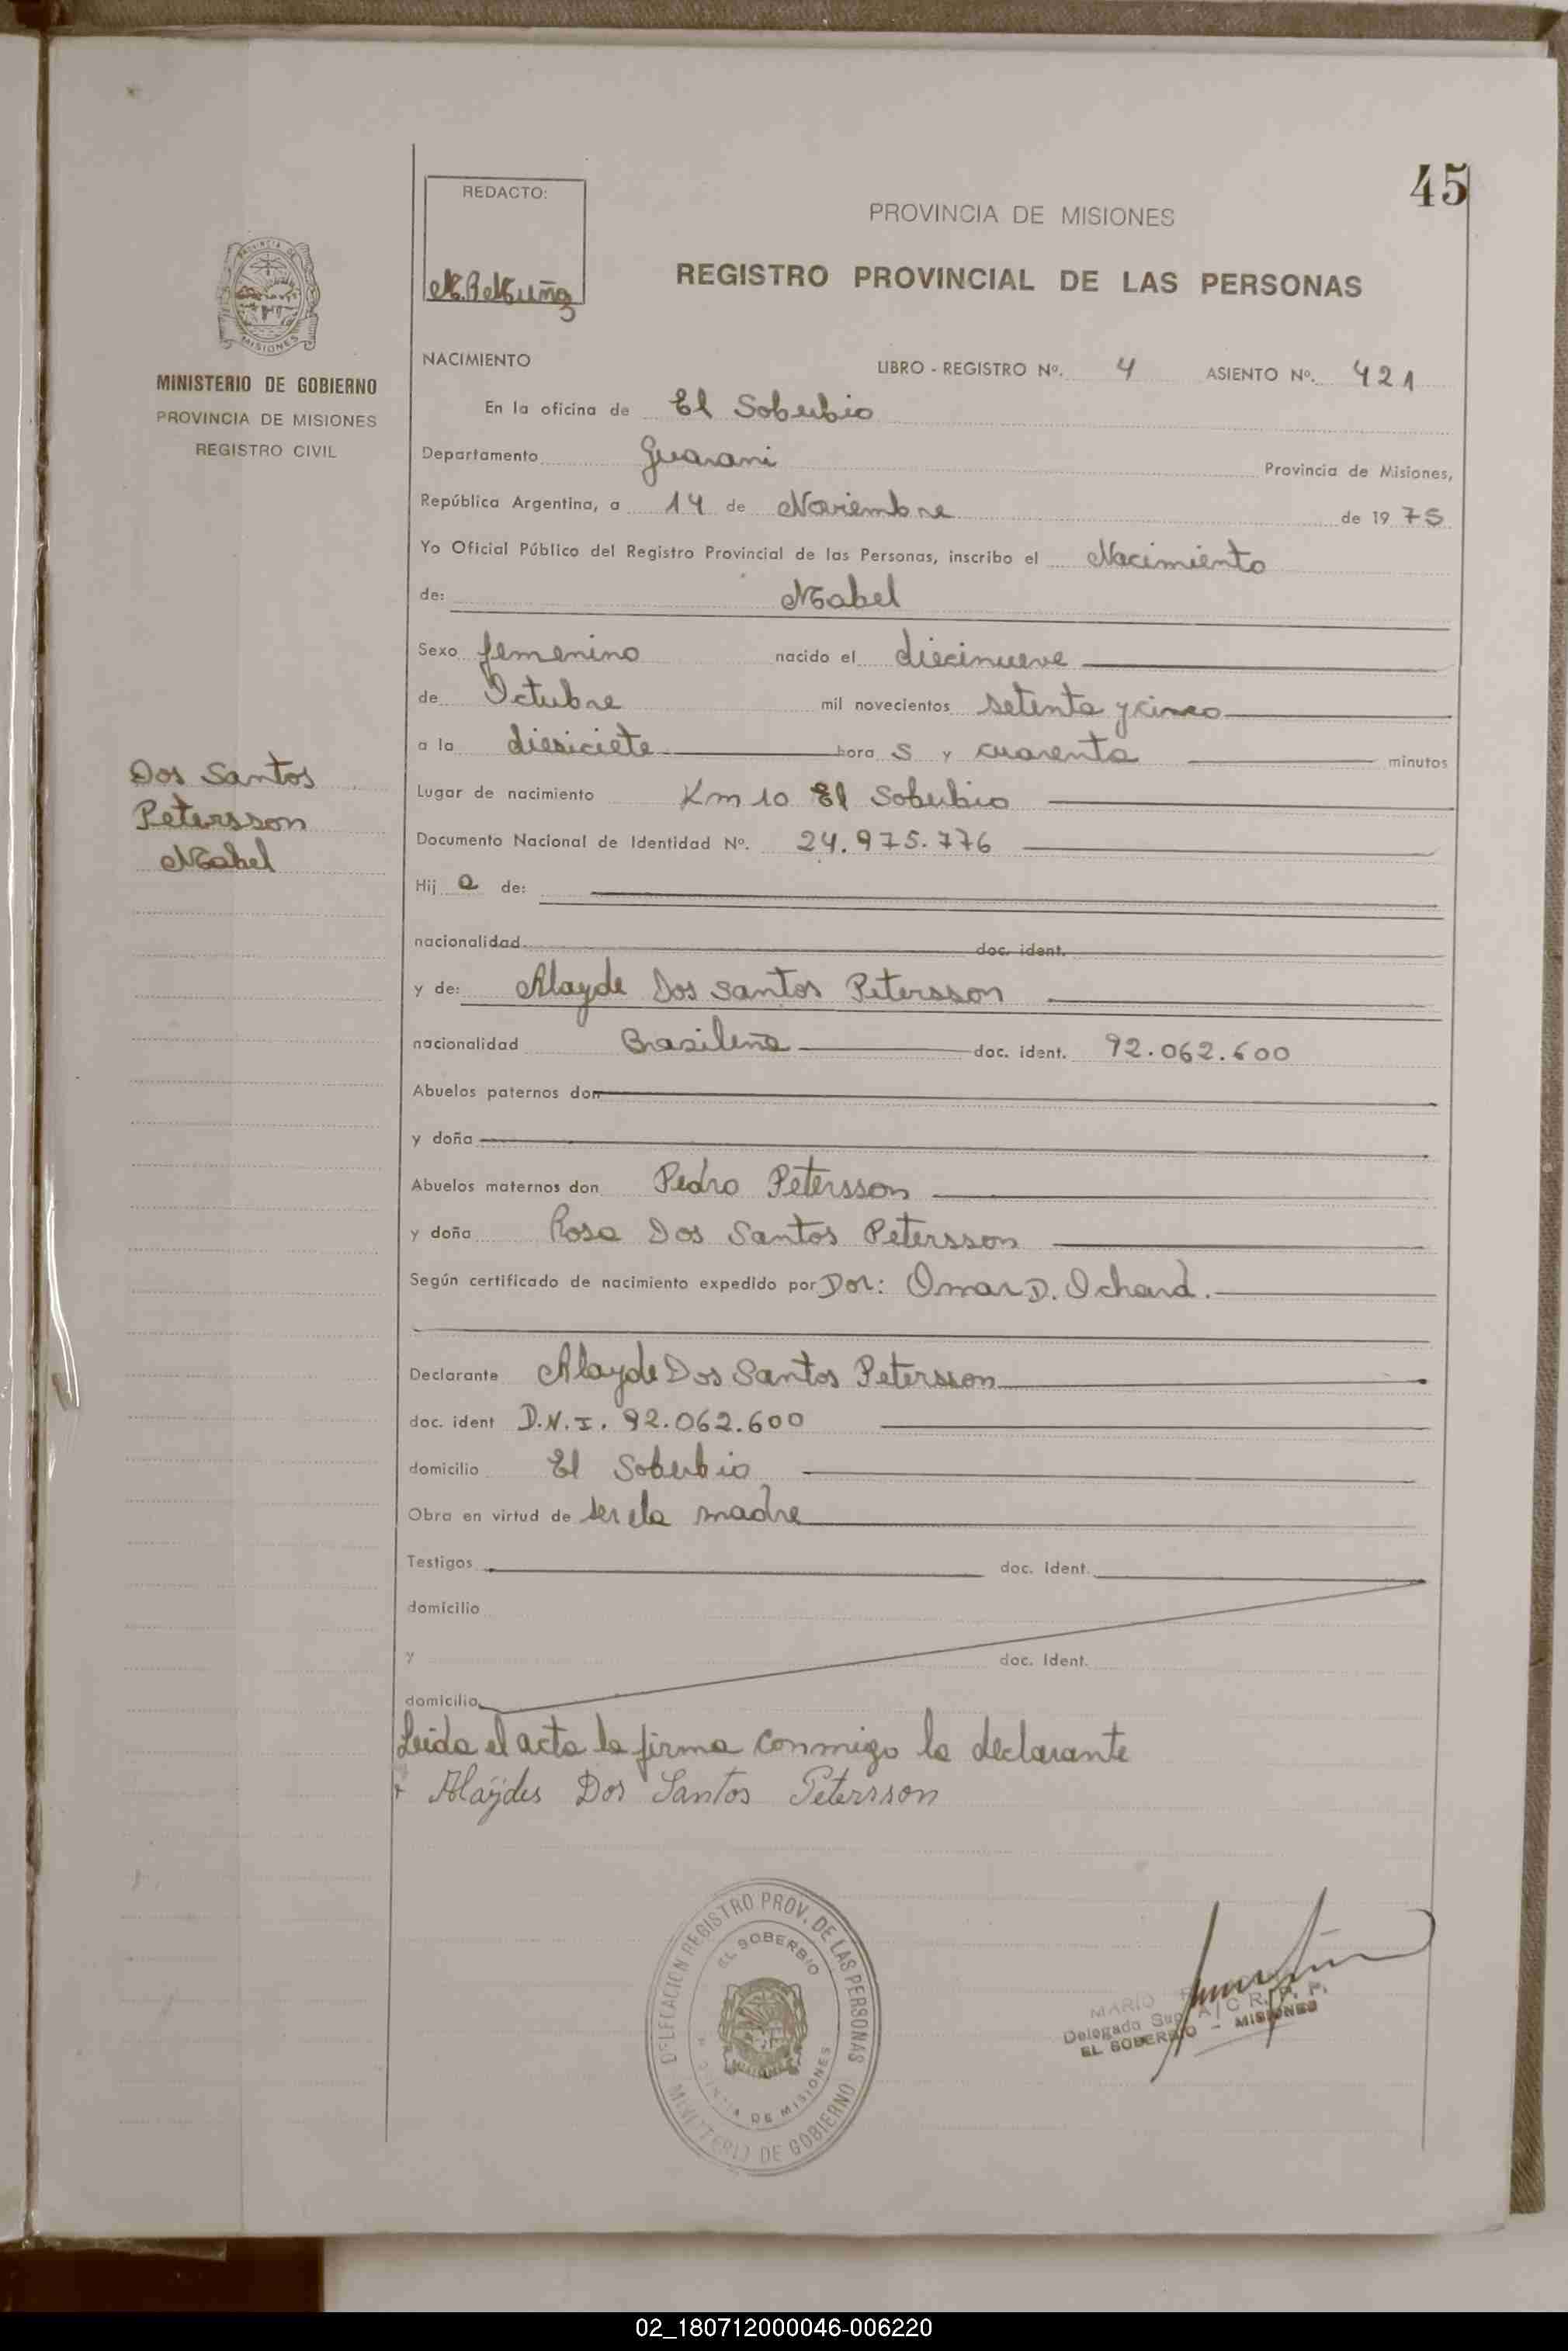 45
REDACTO:
PROVINCIA DE MISIONES
REGISTRO PROVINCIAL DE LAS PERSONAS
MISIONES
MINISTERIO DE GOBIERNO
PROVINCIA DE MISIONES
REGISTRO CIVIL
NACIMIENTO LIBRO - REGISTRO Nº. 4 ASIENTO Nº. 421
En la oficina de El Soberbio
Departamento Guarani Provincia de Misiones,
República Argentina, a 14 de Noviembre de 1975
Yo Oficial Público del Registro Provincial de las Personas, inscribo el Nacimiento
de: Mabel
Sexo femenino nacido el diecinueve
de Octubre mil novecientos setenta y cinco
a la diesiciete hora s y cuarenta minutos
Dos Santos
Petersson
Mabel
Lugar de nacimiento Km 10 El Soberbio
Documento Nacional de Identidad Nº. 24.975.776
Hij a de:
nacionalidad doc. ident.
y de: Alayde Dos Santos Petersson
nacionalidad Brasileña doc. ident. 92.062.600
Abuelos paternos don
y doña
Abuelos maternos don Pedro Petersson
y doña Rosa Dos Santos Petersson
Según certificado de nacimiento expedido por Dor: Omar D. Ochard.
Declarante Alayde Dos Santos Petersson
doc. ident D.N.I. 92.062.600
domicilio El Soberbio
Obra en virtud de ser la madre
Testigos doc. ident.
domicilio
y doc. ident.
domicilio
Leida el acta la firma conmigo la declarante
Alaydes Dos Santos Petersson
DELEGACION REGISTRO PROV. DE LAS PERSONAS
EL SOBERBIO
MISIONES
PROVINCIA DE MISIONES
MINISTERIO DE GOBIERNO
MARIO
Delegado Sup. A/C R. P. P.
EL SOBERBIO - MISIONES
02_180712000046-006220